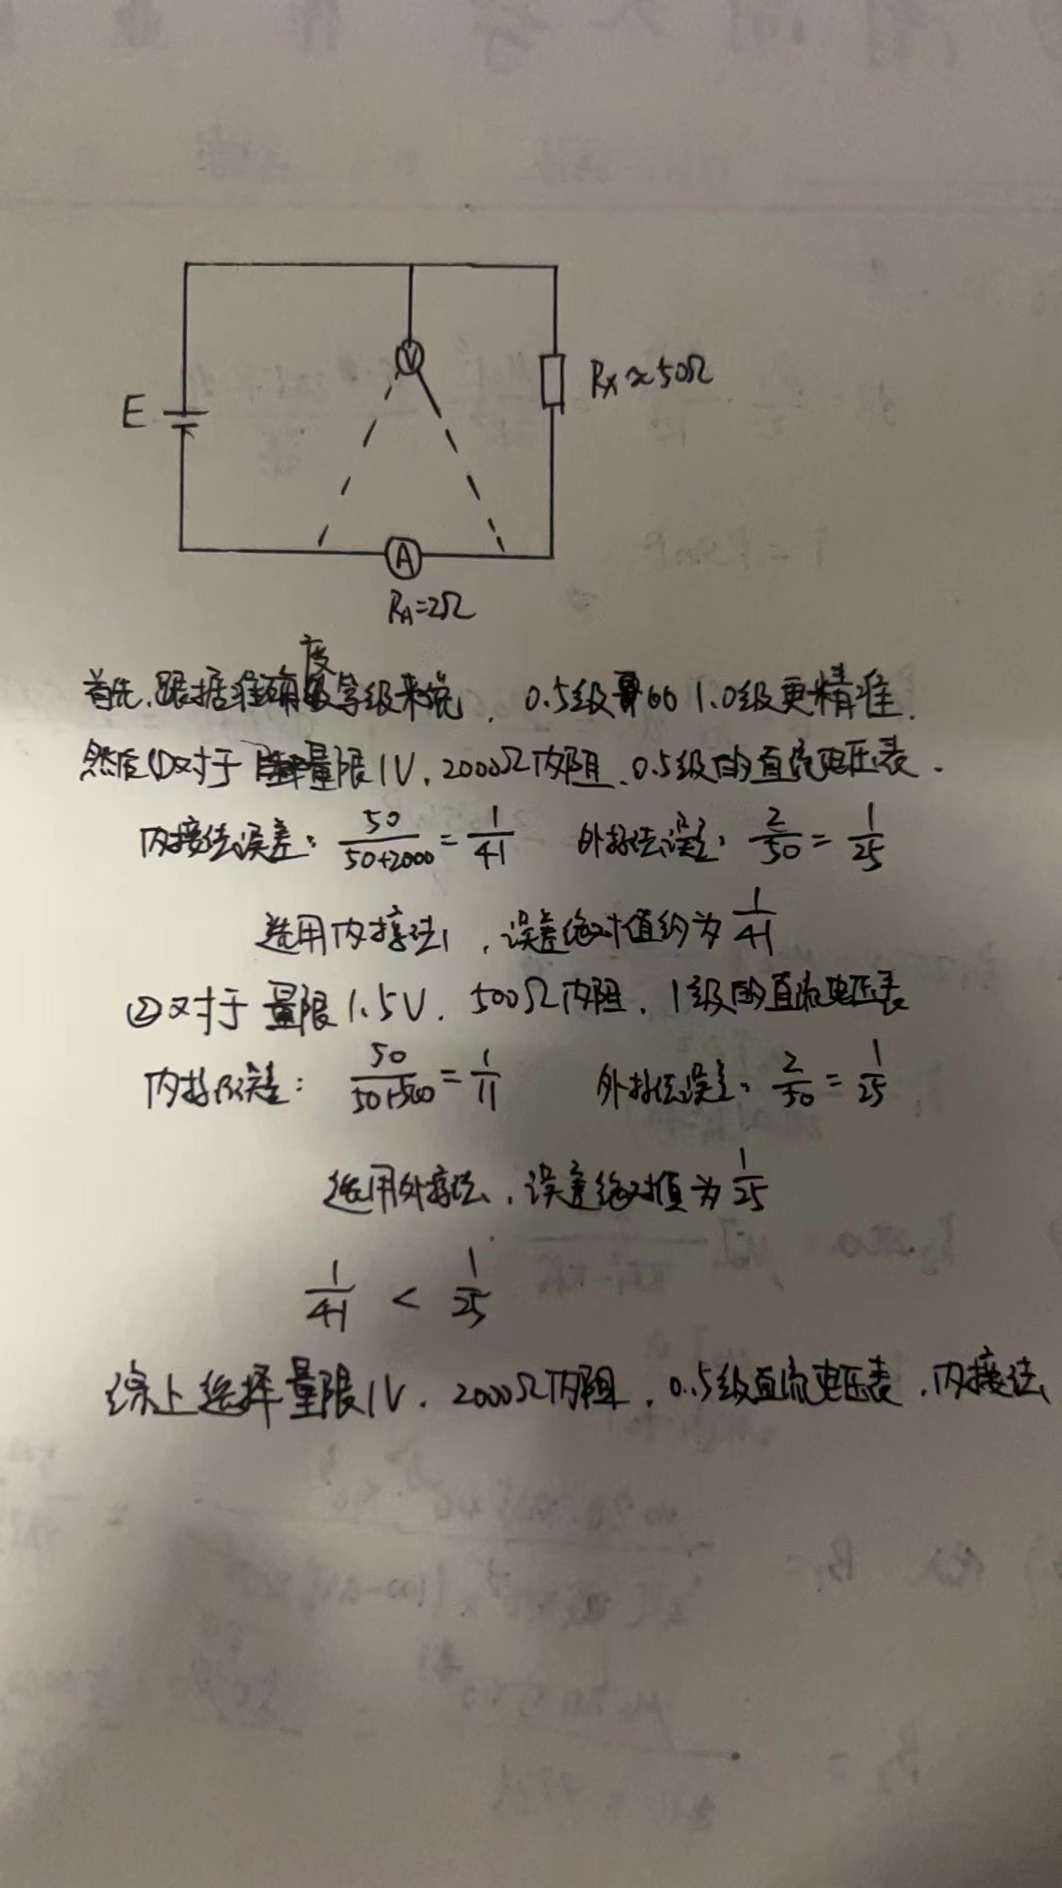 V
E
Rx≈50Ω
A
RA=2Ω
首先,跟据准确度等级来说,0.5级的1.0级更精准.
然后①对于量限1V,2000Ω内阻,0.5级的直流电压表.
内接法误差: 50/(50+2000) = 1/41 外接法误差: 2/50 = 1/25
选用内接法,误差绝对值约为 1/41
②对于量限1.5V,500Ω内阻,1级的直流电压表
内接误差: 50/(50+500) = 1/11 外接法误差: 2/50 = 1/25
选用外接法,误差绝对值为 1/25
1/41 < 1/25
综上选择量限1V,2000Ω内阻,0.5级直流电压表,内接法